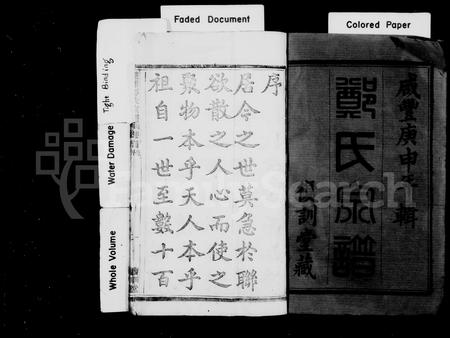 Faded Document
Colored Paper
Tight Binding
Water Damage
Whole Volume
咸豐庚申年輯
鄭氏族譜
訓堂藏
序
居今之世莫急於聯
欲散之人心而使之
聚物本乎天人本乎
祖自一世至數十百
FamilySearch